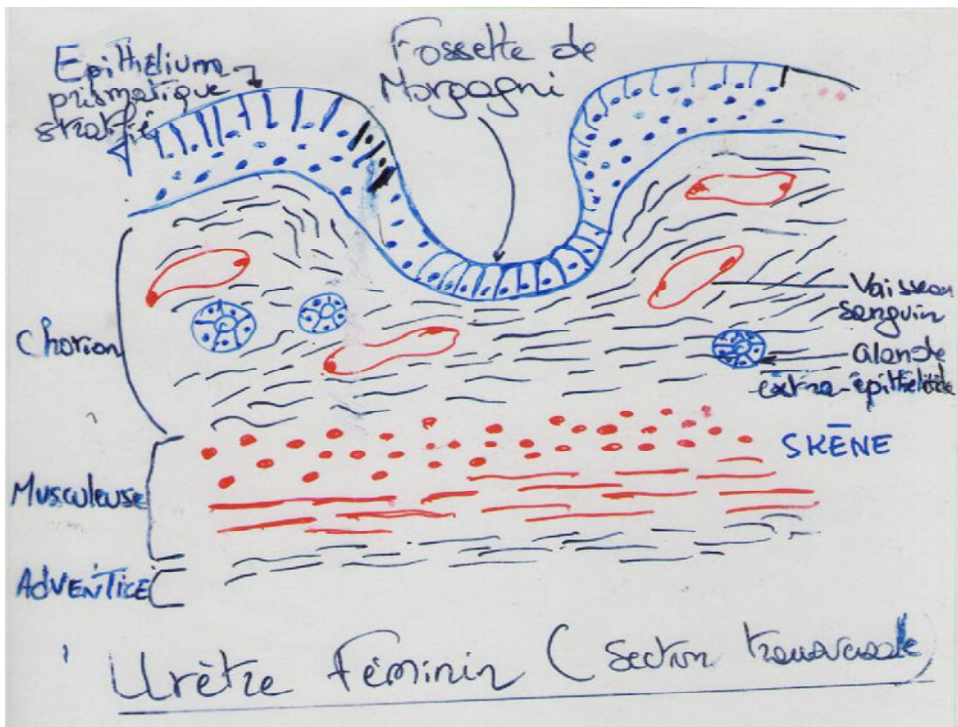 Epithélium
prismatique
stratifié
Fossette de
Morgagni
Chorion
Vaisseau
sanguin
Glande
extra-épithéliale
SKÈNE
Musculeuse
ADVENTICE
Urètre Féminin (section transversale)